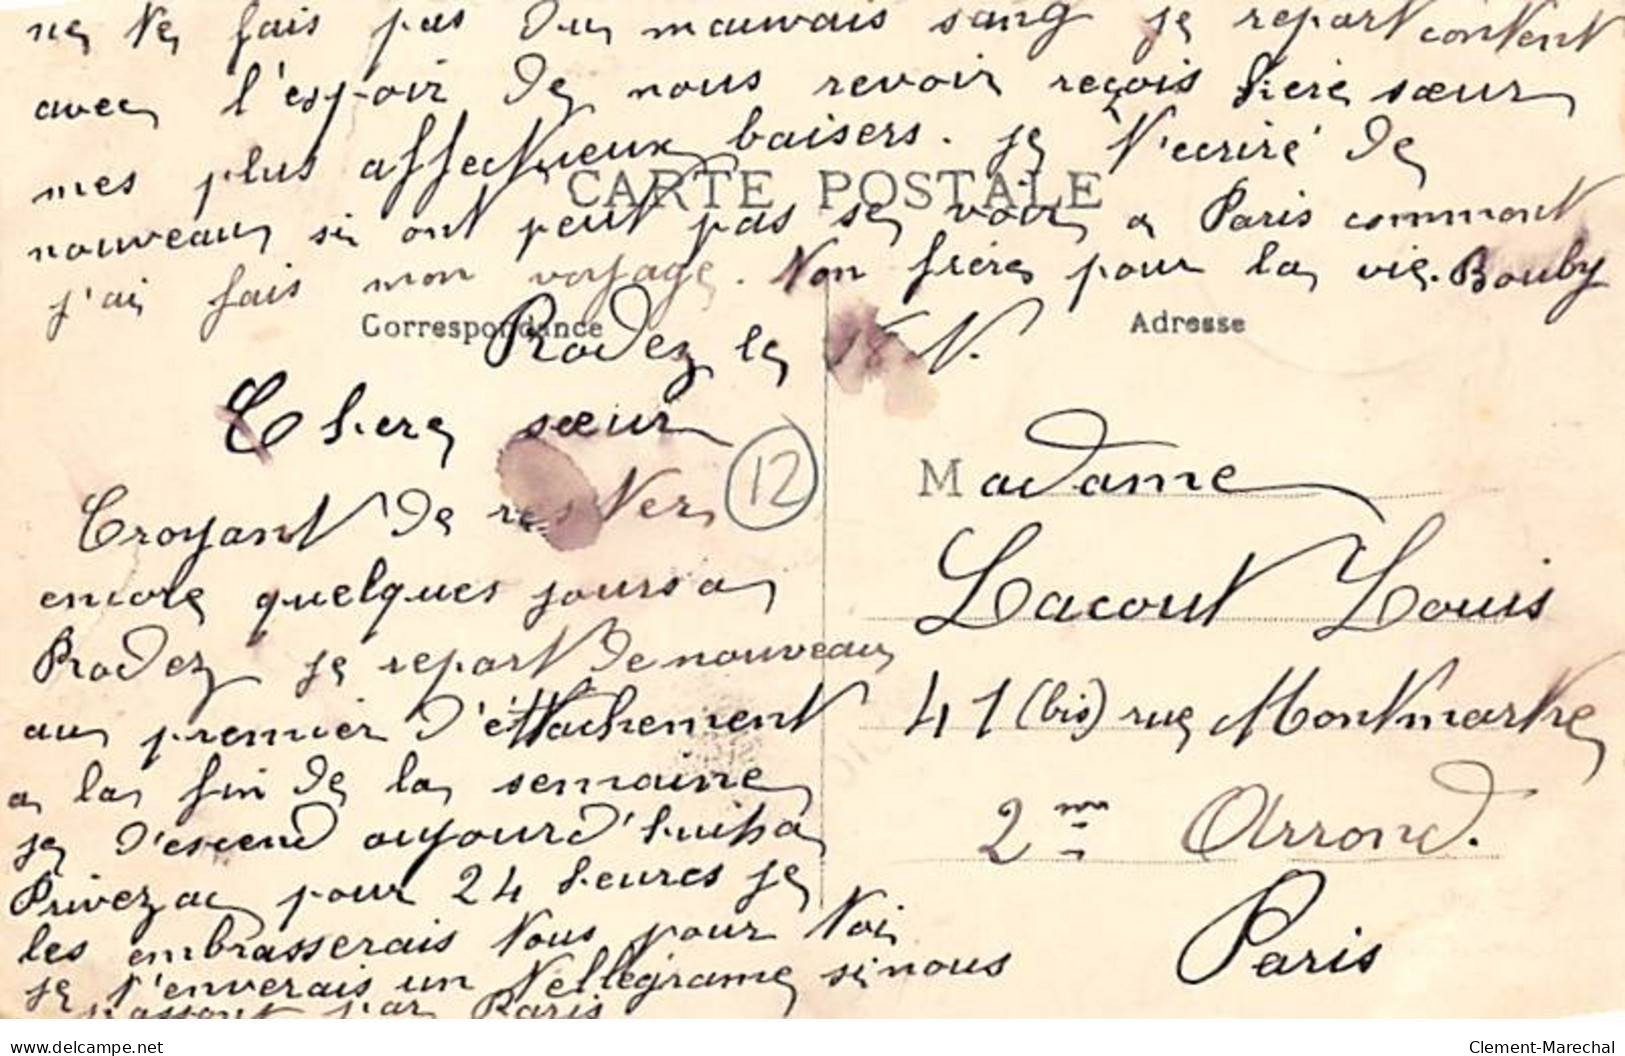 ne te fais pas du mauvais sang je repart content
avec l'espoir de nous revoir reçois chère sœur
mes plus affectueux baisers. je t'écriré de
CARTE POSTALE
nouveau si ont peut pas se voir a Paris comment
j'ai fais mon voyage. Ton frère pour la vie. Bouby
Correspondance
Adresse
Rodez le N.
Chere sœur
12
Croyant de rester
encore quelques jours a
Rodez je repart de nouveau
au premier d'éttachement
a la fin de la semaine
je d'escend aujourd'hui a
Privezac pour 24 heures je
les embrasserais tous pour toi
je t'enverais un tellégrame si nous
passont par Paris
Madame
Lacout Louis
41 (bis) rue Montmartre
2me Arrond.
Paris
delcampe.net
Clement-Marechal